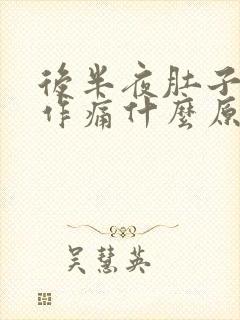 後半夜肚子
作痛什麼原
吳慧英